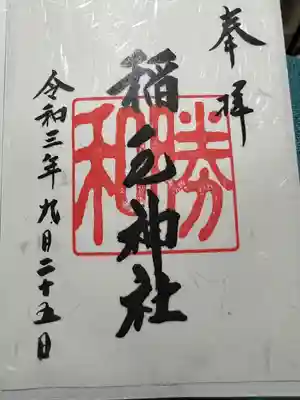 奉拝
稲毛神社
勝和
令和三年九月二十五日